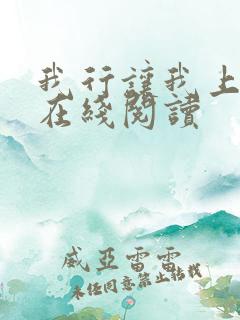 我行讓我上
在綫閱讀
威亞雷雷
未經同意禁止轉載